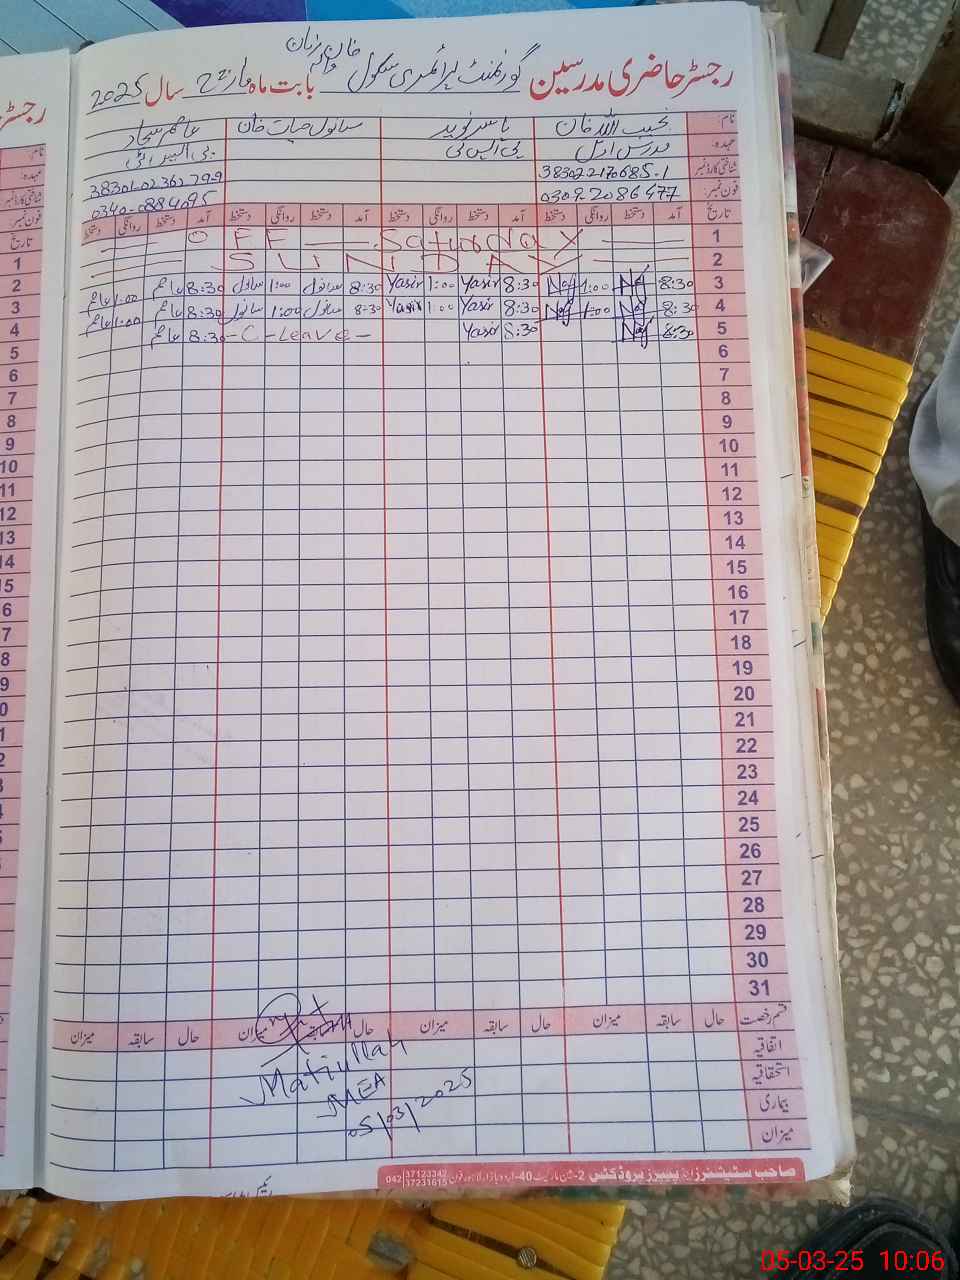 رجسٹر حاضری مدرسین گورنمنٹ پرائمری سکول خان بابت ماہ مارچ سال 2025
نام: نجیب اللہ خان یاسر نوید سانول حیات خان عاصم سجاد
عہدہ: مدرس اول پی ایس ٹی
شناختی کارڈ نمبر
فون نمبر: 0309-2086477 0340-0884095
تاریخ آمد دستخط روانگی دستخط آمد دستخط روانگی دستخط آمد دستخط روانگی دستخط آمد دستخط روانگی دستخط
1 OFF Saturday
2 SUNDAY
3 8:30 1:00 8:30 Yasir 1:00 Yasir 8:30 سانول 1:00 سانول 8:30 عاصم 1:00 عاصم
4 8:30 1:00 8:30 Yasir 1:00 Yasir 8:30 سانول 1:00 سانول 8:30 عاصم 1:00 عاصم
5 8:30 8:30 Yasir - C - Leave - 8:30 عاصم
6
7
8
9
10
11
12
13
14
15
16
17
18
19
20
21
22
23
24
25
26
27
28
29
30
31
قسم رخصت حال سابقہ میزان حال سابقہ میزان حال سابقہ میزان حال سابقہ میزان
اتفاقیہ
استحقاقیہ
بیماری
میزان
Matiullah
MEA
05/03/2025
صاحب سٹیشنرز اینڈ پیپرز پروڈکٹس 042 37123342 37231615
05-03-25 10:06